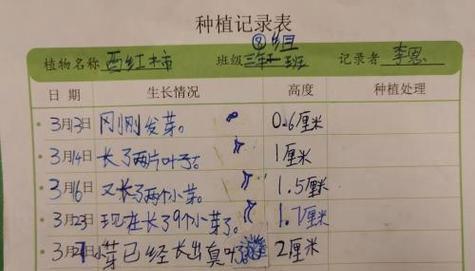 种植记录表
⑧组
植物名称 西红柿 班级 三年 班 记录者 李恩
日 期 生长情况 高度 种植处理
3月13日 刚刚发芽。 0.6厘米
3月14日 长了两片叶子。 1厘米
3月16日 又长了两个小芽。 1.5厘米
3月23日 现在长了9个小芽了。 1.7厘米
小芽已经长出真叶 2厘米